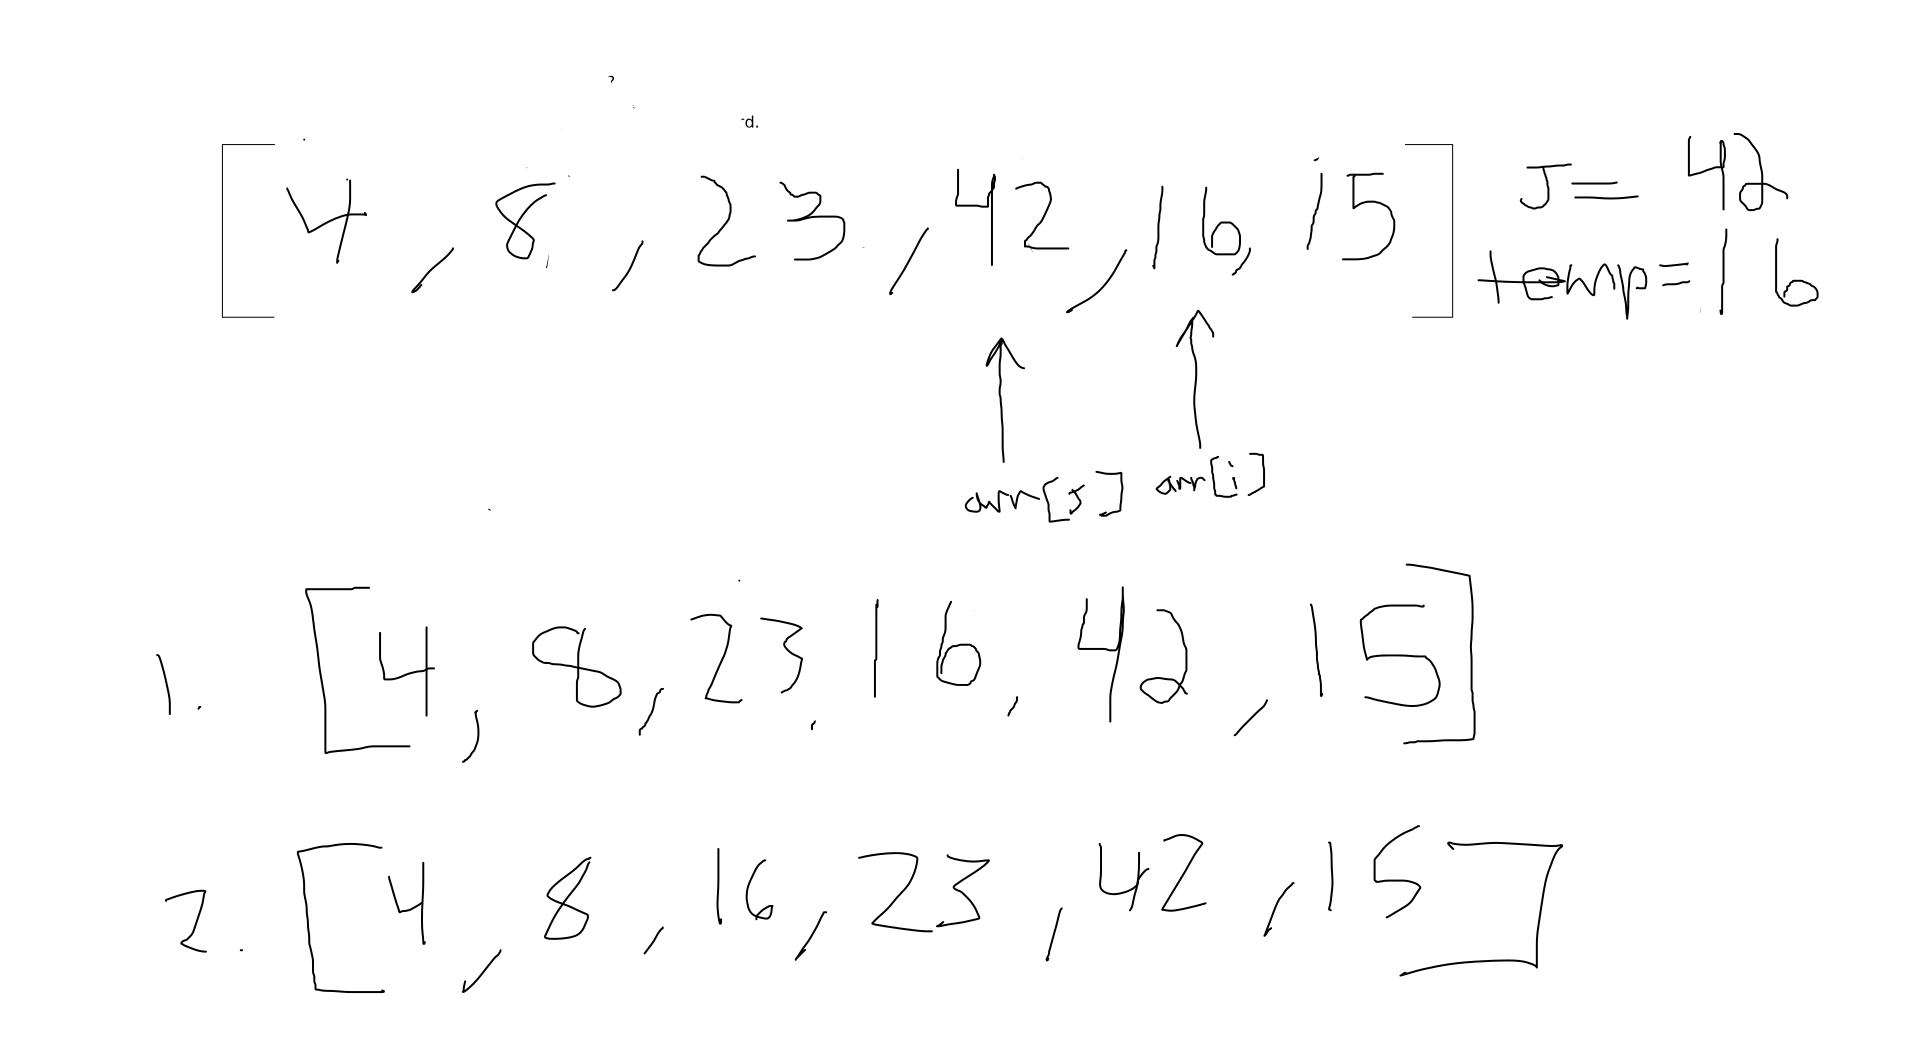 d.
[4, 8, 23, 42, 16, 15] J= 42
temp=16
arr[J] arr[i]
1. [4, 8, 23, 16, 42, 15]
2. [4, 8, 16, 23, 42, 15]